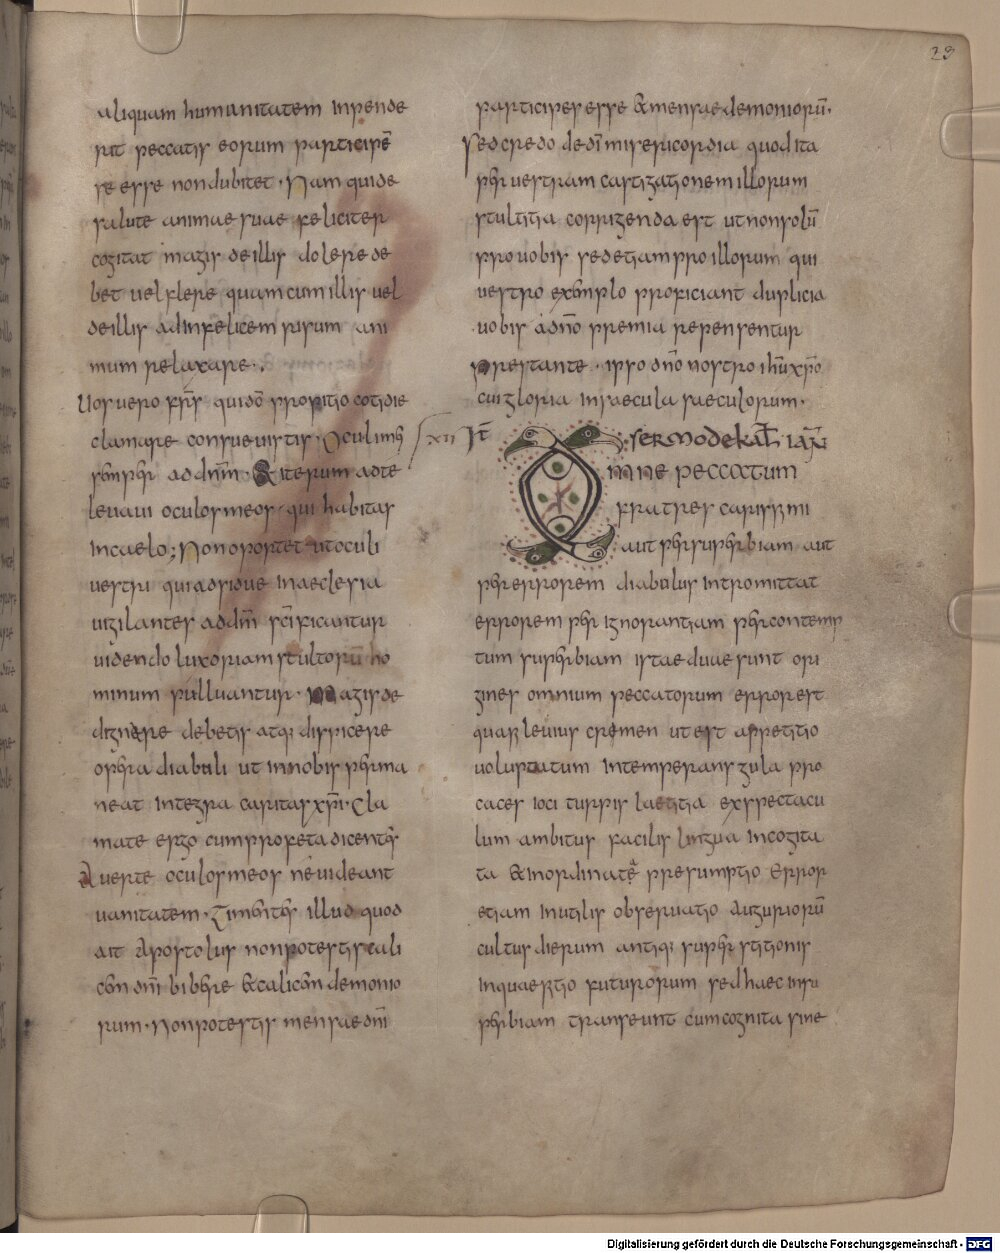 23
aliquam humanitatem inpende
rit peccatis eorum participē
se esse non dubitet · Nam qui de
salute animae suae feliciter
cogitat magis de illis dolere de
bet vel flere quam cum illis vel
de illis ad infelicem risum ani
mum relaxare ·,
Vos vero frs̄ qui dō propitio cotidie
clamare consuevistis · Oculi mī
semper ad dnm̄ · & iterum ad te
levavi oculos meos · qui habitas
in caelo ; Non oportet ut oculi
vestri qui adsidue in aeclesia
vigilantes ad dnm̄ scīficantur
videndo luxoriam stultorū ho
minum pulluantur · Magis de
dignare debetis atq; dispicere
opera diabuli ut in nobis perma
neat integra caritas xpī · Cla
mate ergo cum profeta dicentes
Averte oculos meos ne videant
vanitatem · Timentes illud quod
ait Apostolus non potestis cali
cem dnī bibere & calicem demonio
rum · Non potestis mensae dnī
participes esse & mensae demoniorū ·
Sed credo de dī misericordia quod ita
per vestram castigationem illorum
stultitia corrigenda est ut non solū
pro vobis sed etiam pro illorum qui
vestro exemplo proficiant duplicia
vobis a dn̄o premia repensentur
prestante · ipso dn̄o nostro ihū xpō
cui gloria in saecula saeculorum ·
XII Īt sermo de kal̄ ian̄
Omne peccatum
fratres carissimi
aut per superbiam aut
per errorem diabulus intromittat
errorem per ignorantiam per contemp
tum superbiam istae duae sunt ori
gines omnium peccatorum error est
quasi levius crimen ut est appetitio
voluptatum intemperans gula pro
caces ioci turpis laetitia exspectacu
lum ambitus facilis lingua incogita
ta & inordinata presumptio Error
etiam inutilis observatio Auguriorū
cultus dierum antiqi superstitionis
inquaesitio futurorum sed haec in su
perbiam transeunt cum cognita sine
Digitalisierung gefördert durch die Deutsche Forschungsgemeinschaft - DFG